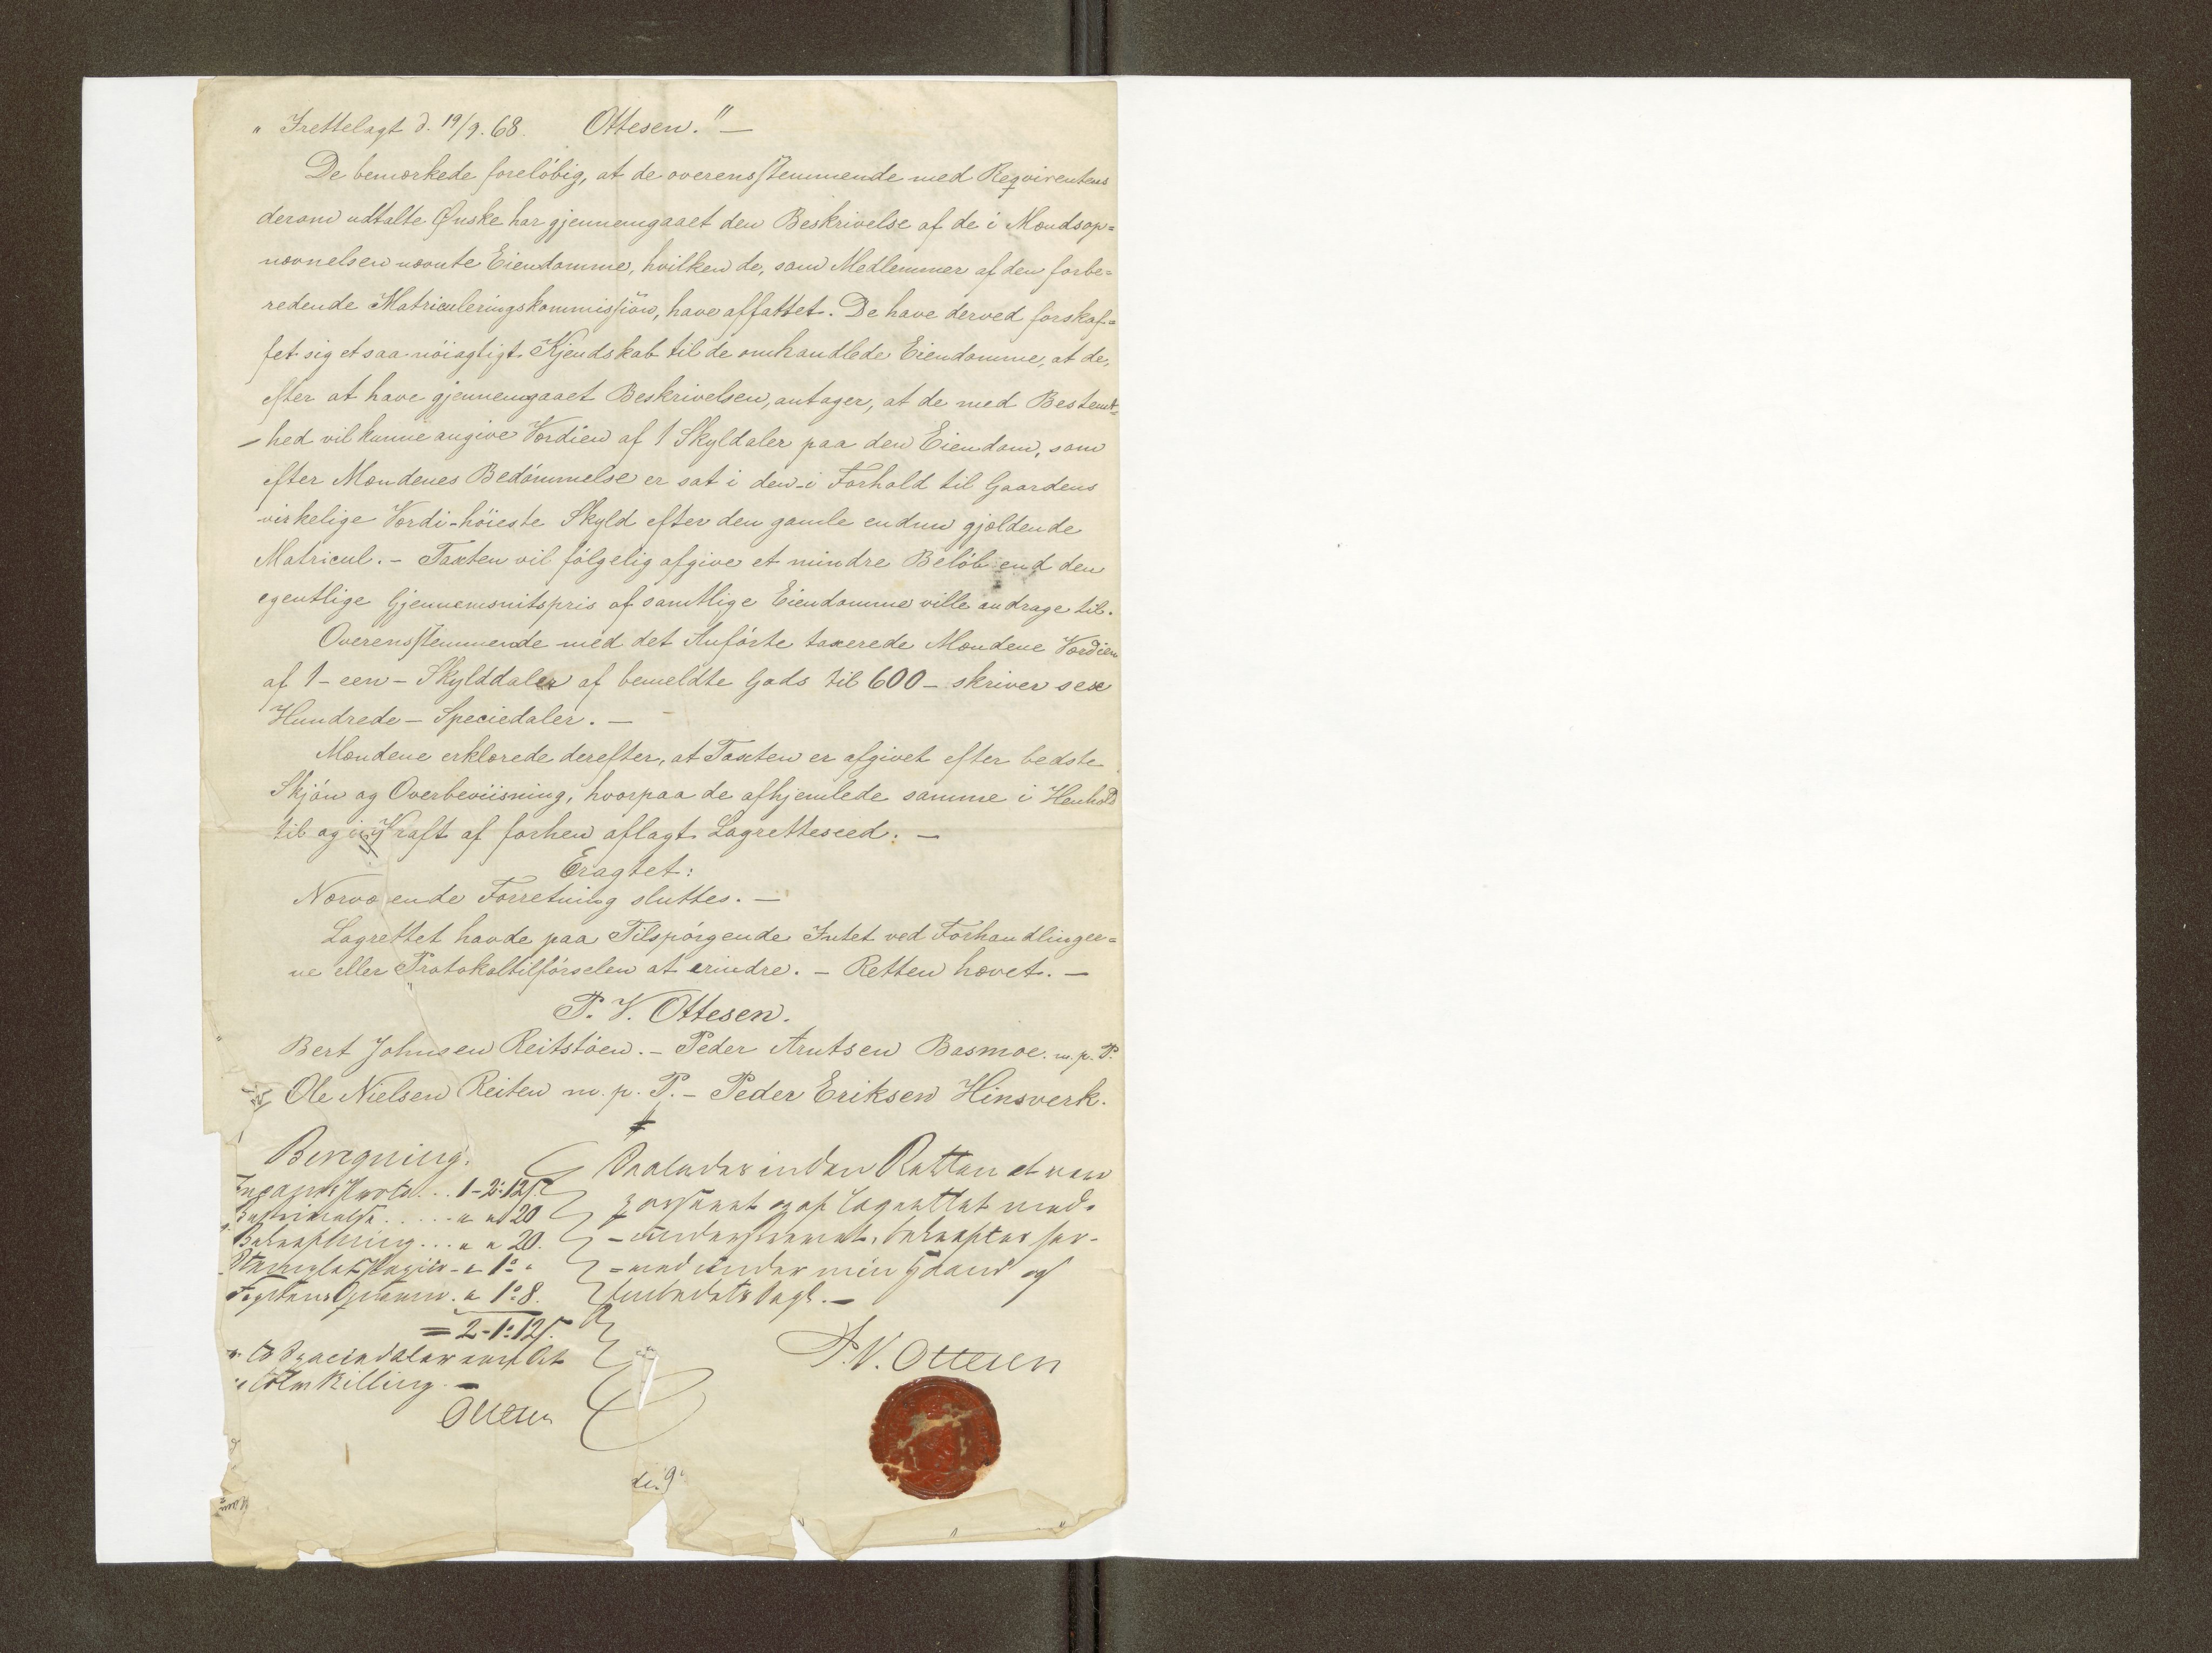 „Irettelagt d. 19/9. 68. Ottesen." —
De bemærkede foreløbig, at de overensstemmende med Reqvirentens
derom udtalte Ønske har gjennemgaaet den Beskrivelse af de i Mændsop=
nævnelsen nævnte Eiendomme, hvilken de, som Medlemmer af den forbe=
redende Matriculeringskommission, have affattet. De have derved forskaf=
fet sig et saa nöiagtigt Kjendskab til de omhandlede Eiendomme, at de,
efter at have gjennemgaaet Beskrivelsen, antager, at de med Bestemt=
–hed vil kunne angive Værdien af 1 Skyldaler paa den Eiendom, som
efter Mændenes Bedömmelse er sat i den – i Forhold til Gaardens
virkelige Værdi – höieste Skyld efter den gamle endnu gjældende
Matricul. – Taxten vil fölgelig afgive et mindre Belöb end den
egentlige Gjennemsnitspris af samtlige Eiendomme ville andrage til.
Overensstemmende med det Anförte taxerede Mændene Værdien
af 1 – een – Skylddaler af bemeldte Gods til 600 – skriver sex
Hundrede – Speciedaler. —
Mændene erklærede derefter, at Taxten er afgivet efter bedste
Skjön og Overbeviisning, hvorpaa de afhjemlede samme i Henhold
til og i Kraft af forhen aflagt Lagretteseed. —
Eragtet:
Nærværende Forretning sluttes. —
Lagrettet havde paa Tilspörgende Intet ved Forhandlinger=
ne eller Protokoltilförselen at erindre. – Retten hævet. —
P. V. Ottesen.
Bert Johnsen Reitstöen. – Peder Arntsen Basmoe. m. p. P.
Ole Nielsen Reiten m. p. P. – Peder Eriksen Hinsverk.
Beregning.
1 – 2: 12 ß.
20
Beskrivelse 20.
Stemplet Papir 1:
Fogdens 1: 8.
= 2 – 1: 12 ß.
to Speciedaler een Ort
tolv Skilling. —
Ottesen
Saaledes inden Retten at være
passeret og af Lagrettet med-
–underskrevet, bekræftes her-
=med under min Haand og
Embedets Segl. —
P. V. Ottesen